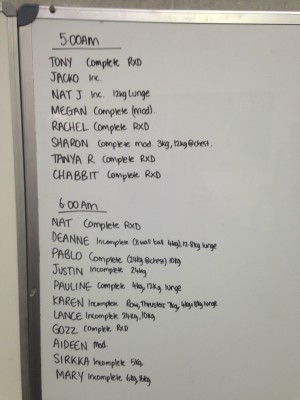 5:00AM
TONY Complete RxD
JACKO Inc.
NAT J Inc. 12kg lunge
MEGAN Complete (mod).
RACHEL Complete RxD
SHARON Complete mod. 3kg, 12kg @chest.
TANYA R Complete RxD
CHABBIT Complete RxD
6:00AM
NAT Complete RxD
DEANNE Incomplete (wall ball 4kg), 12-8kg lunge
PABLO Complete (@chest) 10kg
JUSTIN Incomplete 24kg
PAULINE Complete 4kg, 12kg lunge
KAREN Incomplete Row, Thrusters 7kg, lunge
LANCE Incomplete 24kg, 10kg
GOZZ Complete RxD
AIDEEN Mod.
SIRKKA Incomplete 5kg
MARY Incomplete 6kg, 16kg